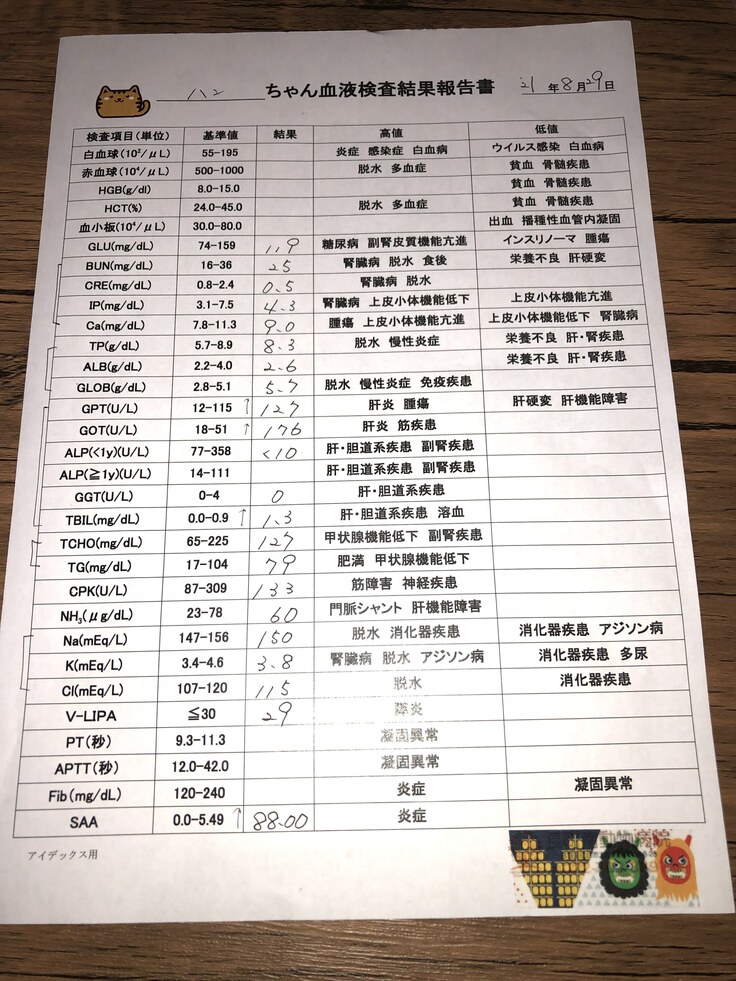 ハン ちゃん血液検査結果報告書 21 年 8 月 29 日
検査項目(単位) 基準値 結果 高値 低値
白血球(10²/μL) 55-195 炎症 感染症 白血病 ウイルス感染 白血病
赤血球(10⁴/μL) 500-1000 脱水 多血症 貧血 骨髄疾患
HGB(g/dl) 8.0-15.0 貧血 骨髄疾患
HCT(%) 24.0-45.0 脱水 多血症 貧血 骨髄疾患
血小板(10⁴/μL) 30.0-80.0 出血 播種性血管内凝固
GLU(mg/dL) 74-159 119 糖尿病 副腎皮質機能亢進 インスリノーマ 腫瘍
BUN(mg/dL) 16-36 25 腎臓病 脱水 食後 栄養不良 肝硬変
CRE(mg/dL) 0.8-2.4 0.5 腎臓病 脱水
IP(mg/dL) 3.1-7.5 4.3 腎臓病 上皮小体機能低下 上皮小体機能亢進
Ca(mg/dL) 7.8-11.3 9.0 腫瘍 上皮小体機能亢進 上皮小体機能低下 腎臓病
TP(mg/dL) 5.7-8.9 8.3 脱水 慢性炎症 栄養不良 肝・腎疾患
ALB(g/dL) 2.2-4.0 2.6 栄養不良 肝・腎疾患
GLOB(g/dL) 2.8-5.1 5.7 脱水 慢性炎症 免疫疾患
GPT(U/L) 12-115 ↑ 127 肝炎 腫瘍 肝硬変 肝機能障害
GOT(U/L) 18-51 ↑ 176 肝炎 筋疾患
ALP(<1y)(U/L) 77-358 <10 肝・胆道系疾患 副腎疾患
ALP(≧1y)(U/L) 14-111 肝・胆道系疾患 副腎疾患
GGT(U/L) 0-4 0 肝・胆道系疾患
TBIL(mg/dL) 0.0-0.9 ↑ 1.3 肝・胆道系疾患 溶血
TCHO(mg/dL) 65-225 127 甲状腺機能低下 副腎疾患
TG(mg/dL) 17-104 79 肥満 甲状腺機能低下
CPK(U/L) 87-309 133 筋障害 神経疾患
NH₃(μg/dL) 23-78 60 門脈シャント 肝機能障害
Na(mEq/L) 147-156 150 脱水 消化器疾患 消化器疾患 アジソン病
K(mEq/L) 3.4-4.6 3.8 腎臓病 脱水 アジソン病 消化器疾患 多尿
Cl(mEq/L) 107-120 115 脱水 消化器疾患
V-LIPA ≦30 29 膵炎
PT(秒) 9.3-11.3 凝固異常
APTT(秒) 12.0-42.0 凝固異常
Fib(mg/dL) 120-240 炎症 凝固異常
SAA 0.0-5.49 ↑ 88.00 炎症
アイデックス用
動物病院